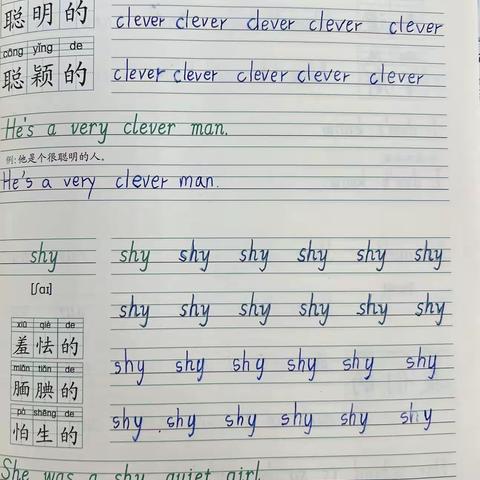 聪明的 clever clever clever clever clever
cōng yǐng de
聪颖的 clever clever clever clever clever
He's a very clever man.
例:他是个很聪明的人。
He's a very clever man.
shy shy shy shy shy shy shy
[ʃaɪ] shy shy shy shy shy shy
xiū qiè de
羞怯的 shy shy shy shy shy shy
miǎn tiǎn de
腼腆的
pà shēng de
怕生的 shy shy shy shy shy shy
She was a shy quiet girl.